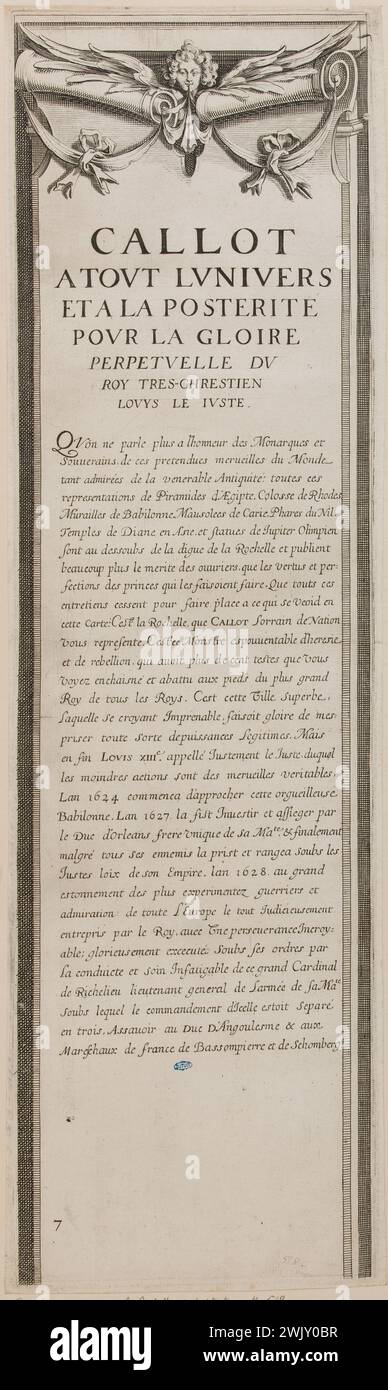 CALLOT
ATOVT LVNIVERS
ET A LA POSTERITE
POVR LA GLOIRE
PERPETVELLE DV
ROY TRES-CHRESTIEN
LOVYS LE IVSTE.
QVon ne parle plus a lhonneur des Monarques et
Souuerains, de ces pretendues merueilles du Monde
tant admirées de la venerable Antiquité: toutes ces
representations de Piramides d'Ægipte, Colosse de Rhodes
Murailles de Babilonne, Mausolees de Carie, Phares du Nil,
Temples de Diane en Asie, et statues de Iupiter Olimpien
sont au dessoubs de la digue de la Rochelle et publient
beaucoup plus le merite des ouuriers, que les vertus et per-
fections des princes qui les faisoient faire. Que touts ces
entretiens cessent pour faire place a ce qui se veoid en
cette Carte: Cest la Rochelle, que CALLOT Lorrain de Nation
vous represente, Cest ce Monstre espouuentable dheresie
et de rebellion, qui auoit plus de cent testes que vous
voyez enchaisné et abattu aux pieds du plus grand
Roy de tous les Roys. Cest cette Ville superbe,
laquelle se croyant Imprenable, faisoit gloire de mes-
priser toute sorte depuissances legitimes. Mais
en fin LOVIS XIIIe. appellé Iustement le Iuste, duquel
les moindres actions sont des merueilles veritables,
Lan 1624 commenca d'approcher cette orgueilleuse
Babilonne. Lan 1627. la fist Inuestir et assieger par
le Duc d'Orleans frere vnique de sa Mate. & finalement
malgré tous ses ennemis la prist et rangea soubs les
Iustes loix de son Empire, lan 1628. au grand
estonnement des plus experimentez guerriers et
admiration de toute l'Europe le tout Iudicieusement
entrepris par le Roy, auec Vne perseuerance Incroy-
able; glorieusement excecuté Soubs ses ordres par
la conduicte et soin Infatigable de ce grand Cardinal
de Richelieu lieutenant general de larmée de sa Mate
soubs lequel le commandement d'Icelle estoit separé
en trois, Assauoir au Duc D'Angoulesme & aux
Mareschaux de france de Bassompierre et de Schomberg
7
alamy
alamy
Image ID: 2WJY0BR
www.alamy.com